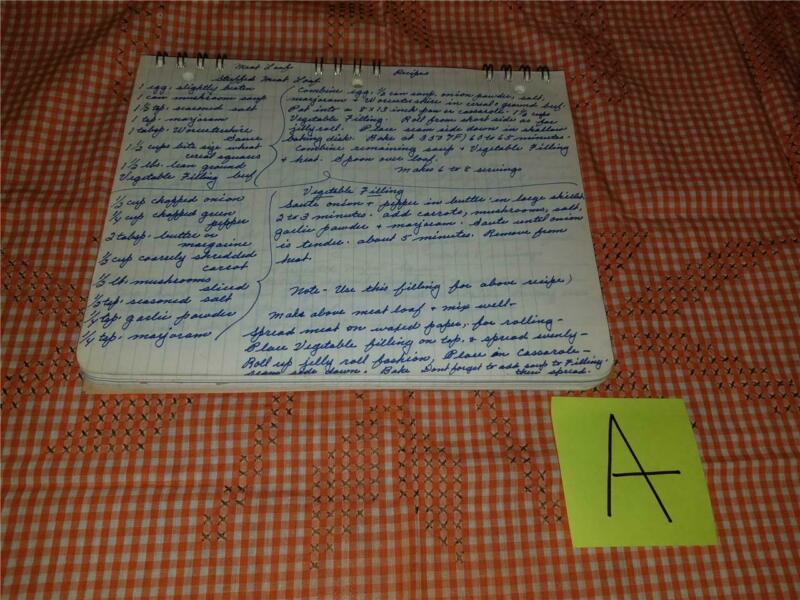 Meat Loaf Recipes
Stuffed Meat Loaf
1 egg, slightly beaten
1 can mushroom soup
1 1/2 tsp. seasoned salt
1 tsp. marjoram
1 tabsp. Worcestershire
Sauce
1 1/2 cups bite size wheat
cereal squares
1 1/2 lbs. lean ground
Vegetable Filling beef
Combine egg, 1/2 can soup, onion powder, salt,
marjoram + Worcestershire in cereal + ground beef.
Pat into a 8 x 13 inch pan or casserole. 1 1/2 cups
Vegetable Filling. Roll from short side as for
jelly roll. Place seam side down in shallow
baking dish. Bake at 357F) 60 to 65 minutes.
Combine remaining soup + Vegetable Filling
+ heat. Spoon over loaf.
Makes 6 to 8 servings
1/2 cup chopped onion
1/4 cup chopped green
pepper
2 tabsp. butter or
margarine
1/2 cup coarsely shredded
carrot
1/2 lb. mushrooms
sliced
1/2 tsp. seasoned salt
1/4 tsp. garlic powder
1/4 tsp. marjoram
Vegetable Filling
Saute onion + pepper in butter in large skillet
2 to 3 minutes. add carrots, mushrooms, salt,
garlic powder + marjoram. Saute until onion
is tender. about 5 minutes. Remove from
heat.
Note - Use this filling for above recipe)
Make above meat loaf + mix well -
Spread meat on waxed paper, for rolling -
Place Vegetable filling on top, & spread evenly -
Roll up jelly roll fashion, Place in casserole -
seam side down. Bake Dont forget to add soup to Filling,
then spread.
A